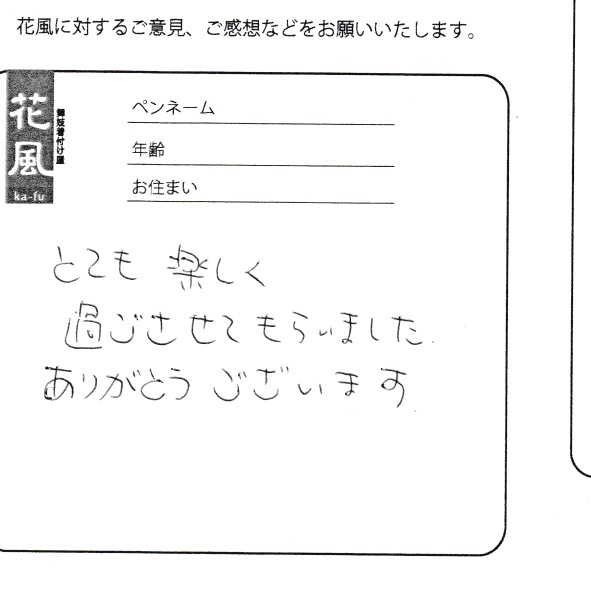 花風に対するご意見、ご感想などをお願いいたします。
花風
ka-fu
舞妓着付け屋
ペンネーム
年齢
お住まい
とても 楽しく
過ごさせてもらいました.
ありがとう ございます